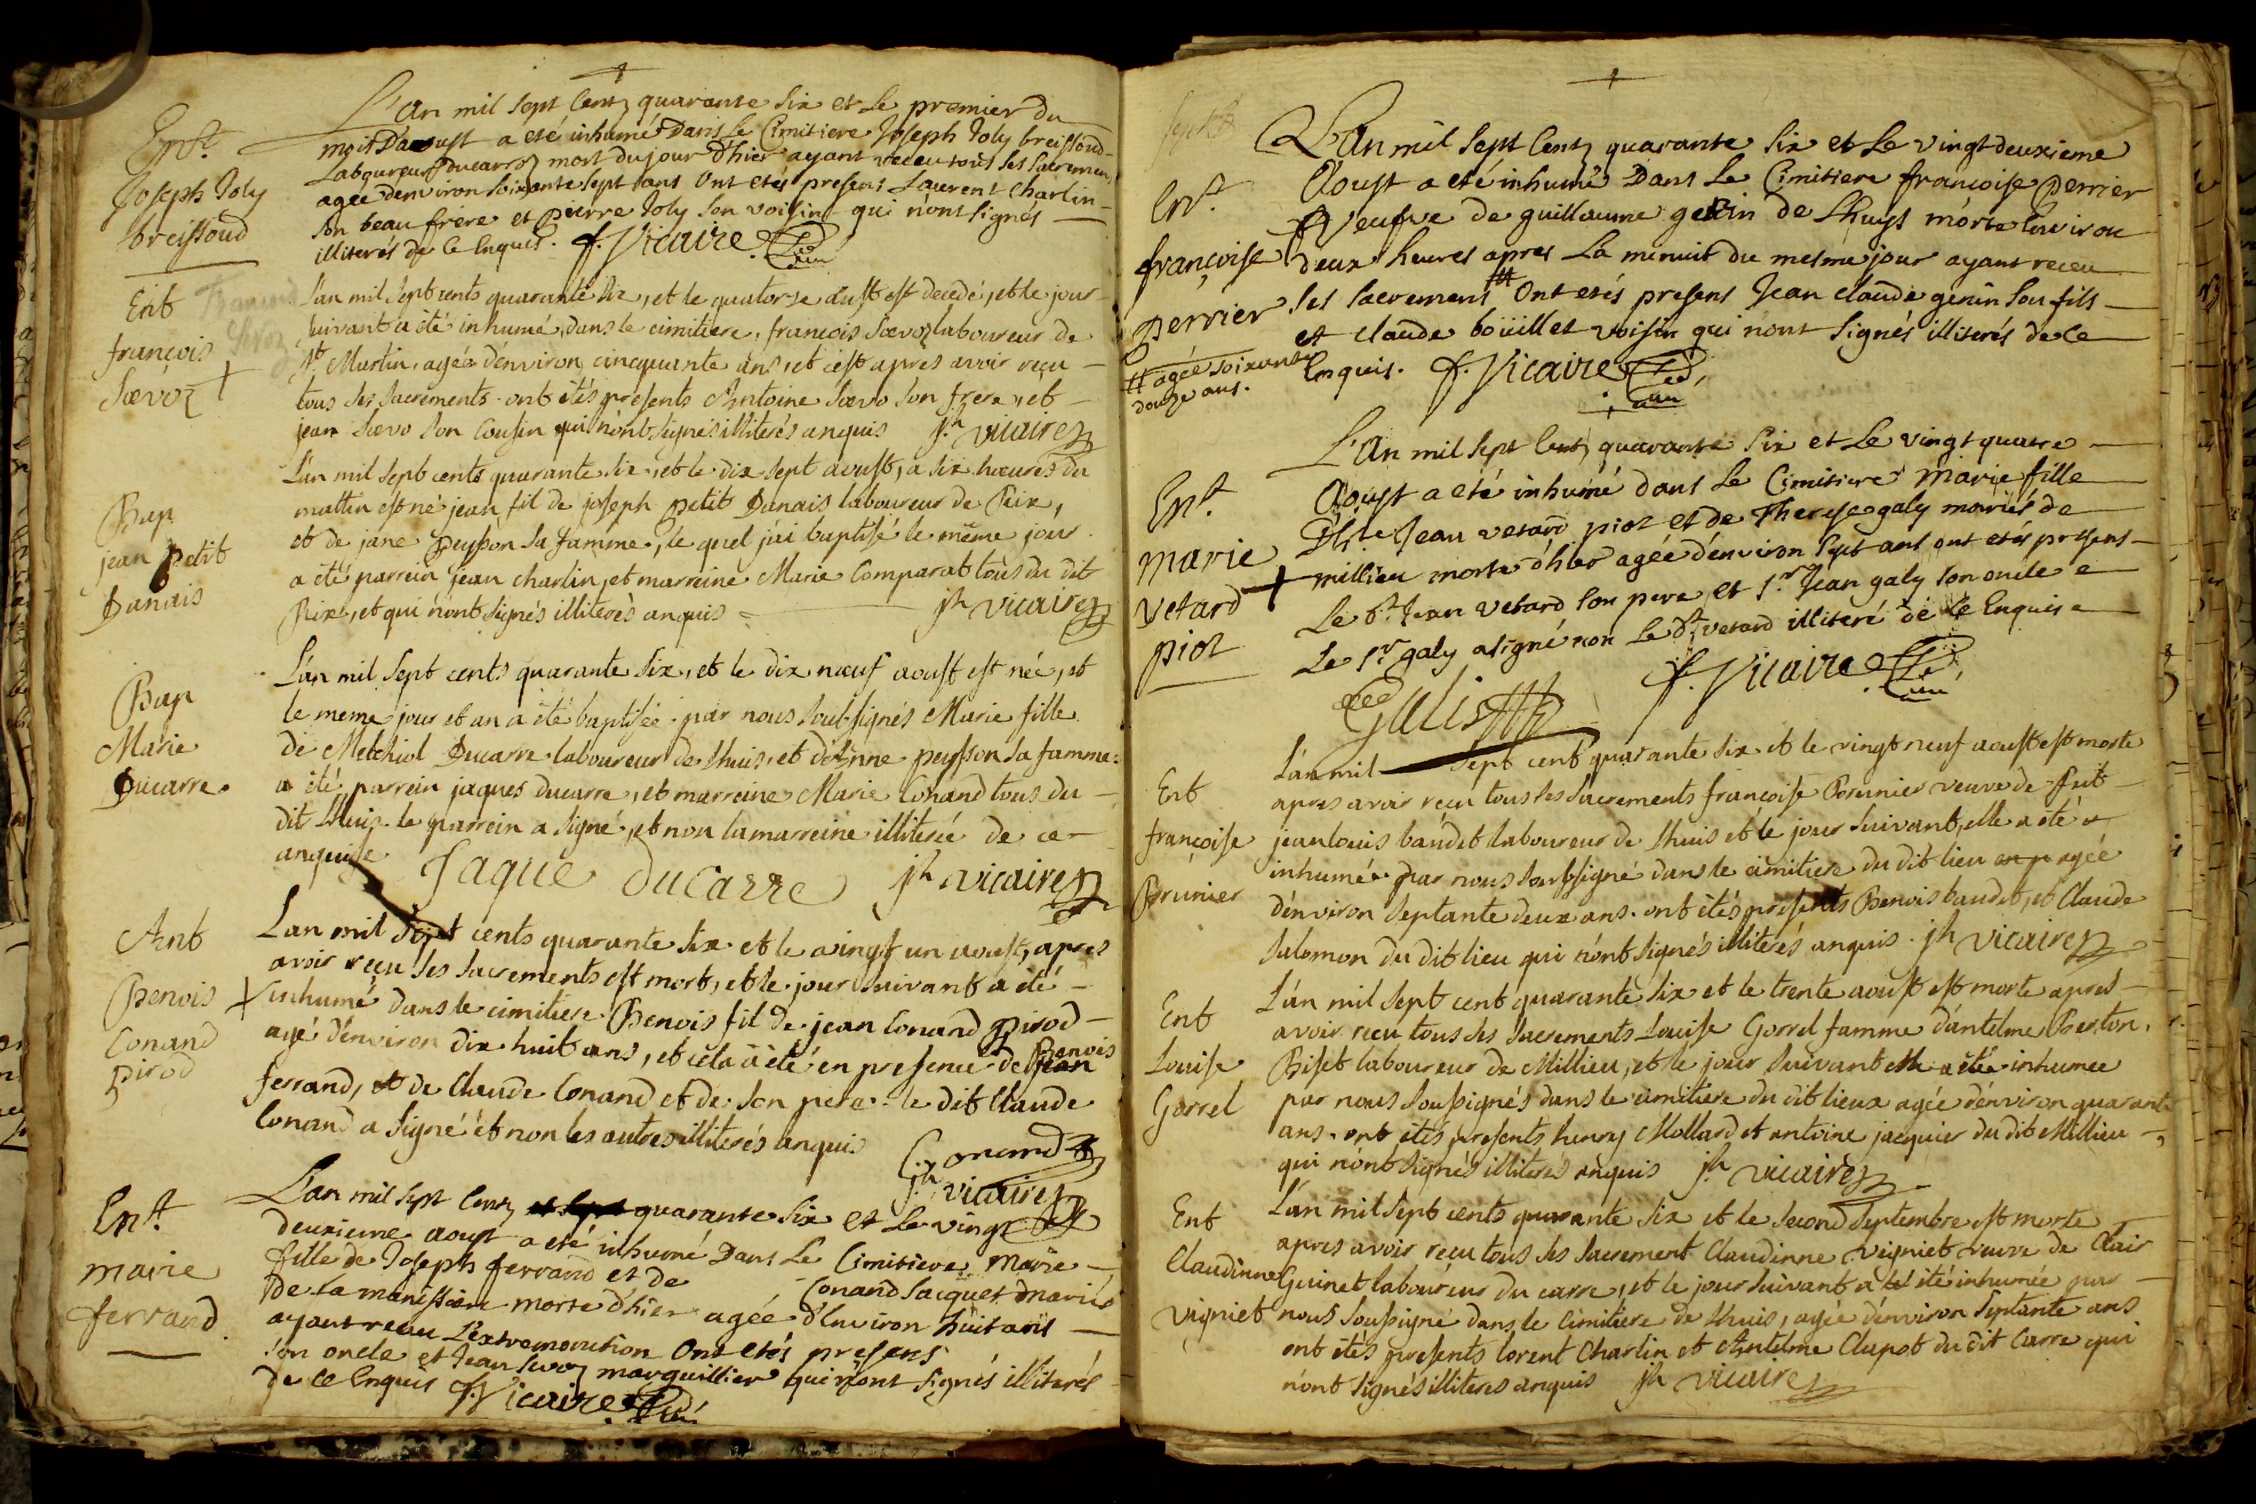 L'an mil sept Cents quarante six et Le premier du
Ent.
mois D'aoust a eté inhumé Dans Le Cimitiere Joseph Joly breissoud
Joseph Joly
Laboureur mort du jour d'hier ayant receu tous ses sacremens
breissoud
agée denviron soixante sept ans Ont etés presens Laurent Charlin
son beau frere et pierre Joly son voisin qui n'ont signés
illiterés de ce Enquis. f. Vicaire
Ent
françois
Sævoz
L'an mil sept cents quarante six, et le quatorze aust est decedé, et le jour
suivant a été inhumé, dans le cimitiere, francois Sævoz laboureur de
St. Martin, agée d'environ cincquante ans, et cest apres avoir reçu
tous ses sacrements. ont étés presents Antoine Sævo son frere, et
jean Sævo son Cousin qui n'ont signés illiterés anquis jh vicaire
Bap
jean Petit
Danais
L'an mil sept cents quarante six, et le dix sept aoust, a six hœures du
mattin est né jean fil de joseph petit Danais laboureur de Rix,
et de jane Peysson sa famme, le quel j'ai baptisé le même jour
a été parrein jean charlin, et marreine Marie Comparat tous du dit
Rix, et qui n'ont signés illiterés anquis jh vicaire
Bap
Marie
Ducarre
L'an mil sept cents quarante six, et le dix nœuf aoust est née, et
le meme jour et an a été baptisée par nous soubsignés Marie fille
de Melchiol Ducarre laboureur de Lhuis, et d'Anne peysson sa famme
a été parrein jaques ducarre, et marreine Marie Conand tous du
dit Lhuis. le parrein a signé, et non la marreine illiterée de ce
anquise Jaque Ducarre jh vicaire
Ant
Benois
Conand
Pirod
L'an mil sept cents quarante six et le vingt un aoust, apres
avoir reçu ses sacrements est mort, et le jour suivant a été
inhumé dans le cimitiere Benois fil de jean Conand Pirod
agé d'environ dix huit ans, et cela a été en presence de Benois
ferrand, et de Claude Conand et de son pere. le dit Claude
Conand a signé et non les autres illiterés anquis
C. Conand
jh vicaire
Ent.
marie
ferrand
L'an mil sept Cents quarante six et Le vingt
deuxieme aoust a eté inhumé Dans Le Cimitiere Marie
fille de Joseph ferrand et de Conand Jacquet mariés
De La manissiere morte d'hier agée d'Environ huit ans
ayant receu L'extremonction Ont etés presens
son oncle et Jean Sevoz marguillier qui n'ont signés illiterés
de ce Enquis f. Vicaire
Ent.
françoise
perrier
L'an mil sept Cents quarante six et Le vingt deuxieme
Aoust a eté inhumé Dans Le Cimitiere françoise perrier
Veufve de guillaume genin de Lhuys morte Environ
deux heures apres La minuit du mesme jour ayant receu
ses sacremens # Ont etés presens Jean claude genin son fils
et claude boüillet voisin qui n'ont signés illiterés de ce
Enquis. f. Vicaire
# agée soixante
douze ans.
Ent.
marie
vetard
piot
L'An mil sept Cents quarante six et Le vingt quatre
Aoust a eté inhumé dans Le Cimitiere Marie fille
Jean vetard piot et de Therese galy mariés de
millieu morte d'hier agée d'environ sept ans ont etés presens
Le dt. Jean vetard son pere, et Sr. Jean galy son oncle
Le Sr galy a signé non Le dt vetard illiteré de ce Enquis
Galis f. Vicaire
Ent
françoise
Brunier
L'an mil sept cent quarante six et le vingt neuf aoust est morte
apres avoir reçu tous les sacrements françoise Brunier veuve de fut
jean louis baudet laboureur de Lhuis et le jour suivant, elle a été
inhumée par nous soubsigné dans le cimitiere du dit lieu agée
d'environ septante deux ans. ont étés presents Benois baudet, et Claude
Salomon du dit lieu qui n'ont signés illiterés anquis. jh vicaire
Ent
Louise
Gorrel
L'an mil sept cent quarante six et le trente aoust est morte apres
avoir reçu tous ses sacrements Louise Gorrel famme d'antelme Berton
Biset laboureur de Millieu, et le jour suivant elle a été inhumee
par nous soussignés dans le cimitiere du dit lieux agée d'environ quarante
ans. ont étés presents henry Mollard et antoine jacquier du dit Millieu
qui n'ont signés illiterés anquis jh vicaire
Ent
Claudinne
Vigniet
L'an mil sept cents quarante six et le second septembre est morte
apres avoir reçu tous ses sacrement Claudinne Vigniet veuve de Clair
Guinet laboureur du carre, et le jour suivant a été inhumée par
nous soussigné dans le cimitiere de Lhuis, agée d'environ septante ans
ont étés presents lorent Charlin et Antelme Clapot du dit Carre qui
n'ont signés illiteres anquis jh vicaire